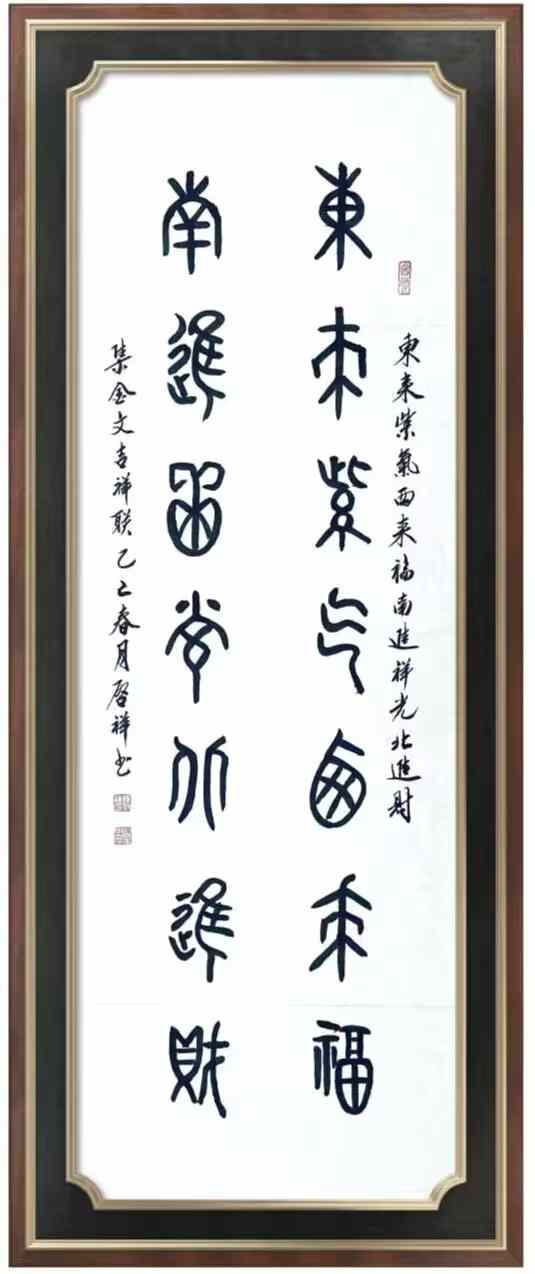 東来紫氣西来福南進祥光北進財
東來紫气西來福
南進祥光北進財
集金文吉祥联乙巳春月启祥书